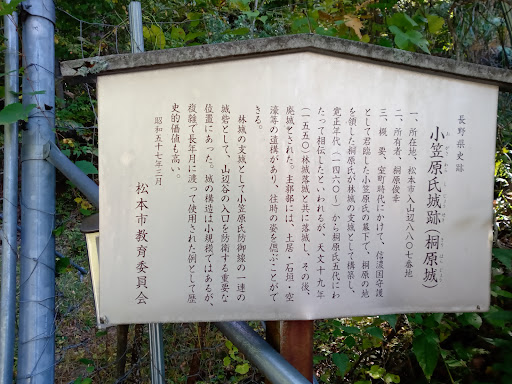 長野県史跡
小笠原氏城跡（桐原城）
一、所在地、松本市入山辺八八〇七番地
二、所有者、桐原俊幸
三、概　要、室町時代にかけて、信濃国守護
として君臨した小笠原氏の幕下で、桐原の地
を領した桐原氏が林城の支城として構築し、
寛正年代（一四六〇〜）から桐原氏五代にわ
たって相伝したといわれるが、天文十九年
（一五五〇）林城落城と共に落城し、その後、
廃城とされた。主郭部には、土居・石垣・空
濠等の遺構があり、往時の姿を偲ぶことがで
きる。
林城の支城として小笠原氏防御線の一連の
城砦として、山辺谷の入口を防衛する重要な
位置にあった。城の構造は小規模ではあるが、
複雑で長年月に渡って使用された例として歴
史的価値も高い。
昭和五十七年三月
松本市教育委員会